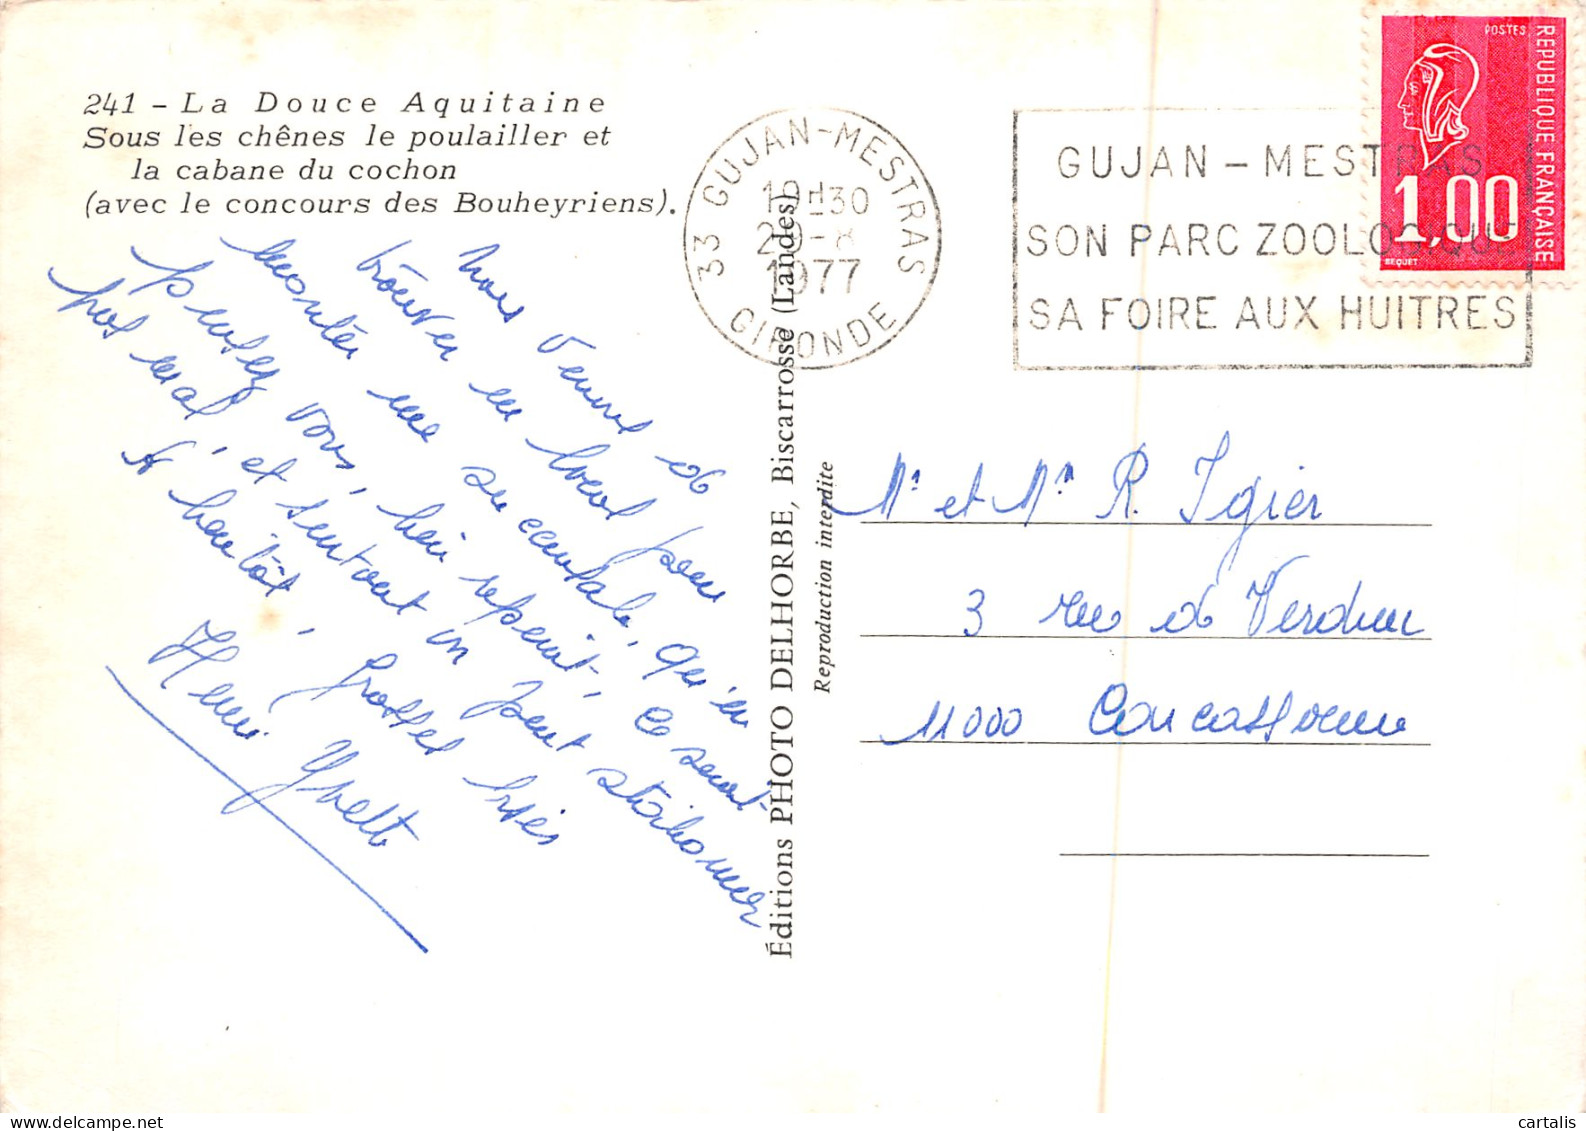 241 – La Douce Aquitaine
Sous les chênes le poulailler et
la cabane du cochon
(avec le concours des Bouheyriens).
Nous venons de
trouver un local pour
monter une succursale, qu'en
pensez vous, hein ce serait
pas mal, et surtout on peut
A bientôt, grosses bises
Henri Yvette
Éditions PHOTO DELHORBE, Biscarrosse (Landes)
Reproduction interdite
33 GUJAN-MESTRAS
19H30
29-8
1977
GIRONDE
GUJAN – MESTRAS
SON PARC ZOOLOGIQUE
SA FOIRE AUX HUITRES
POSTES
REPUBLIQUE FRANÇAISE
1,00
BEQUET
Mr et Mme R. Igier
3 rue de Verdun
11000 Carcassonne
cartalis
www.delcampe.net